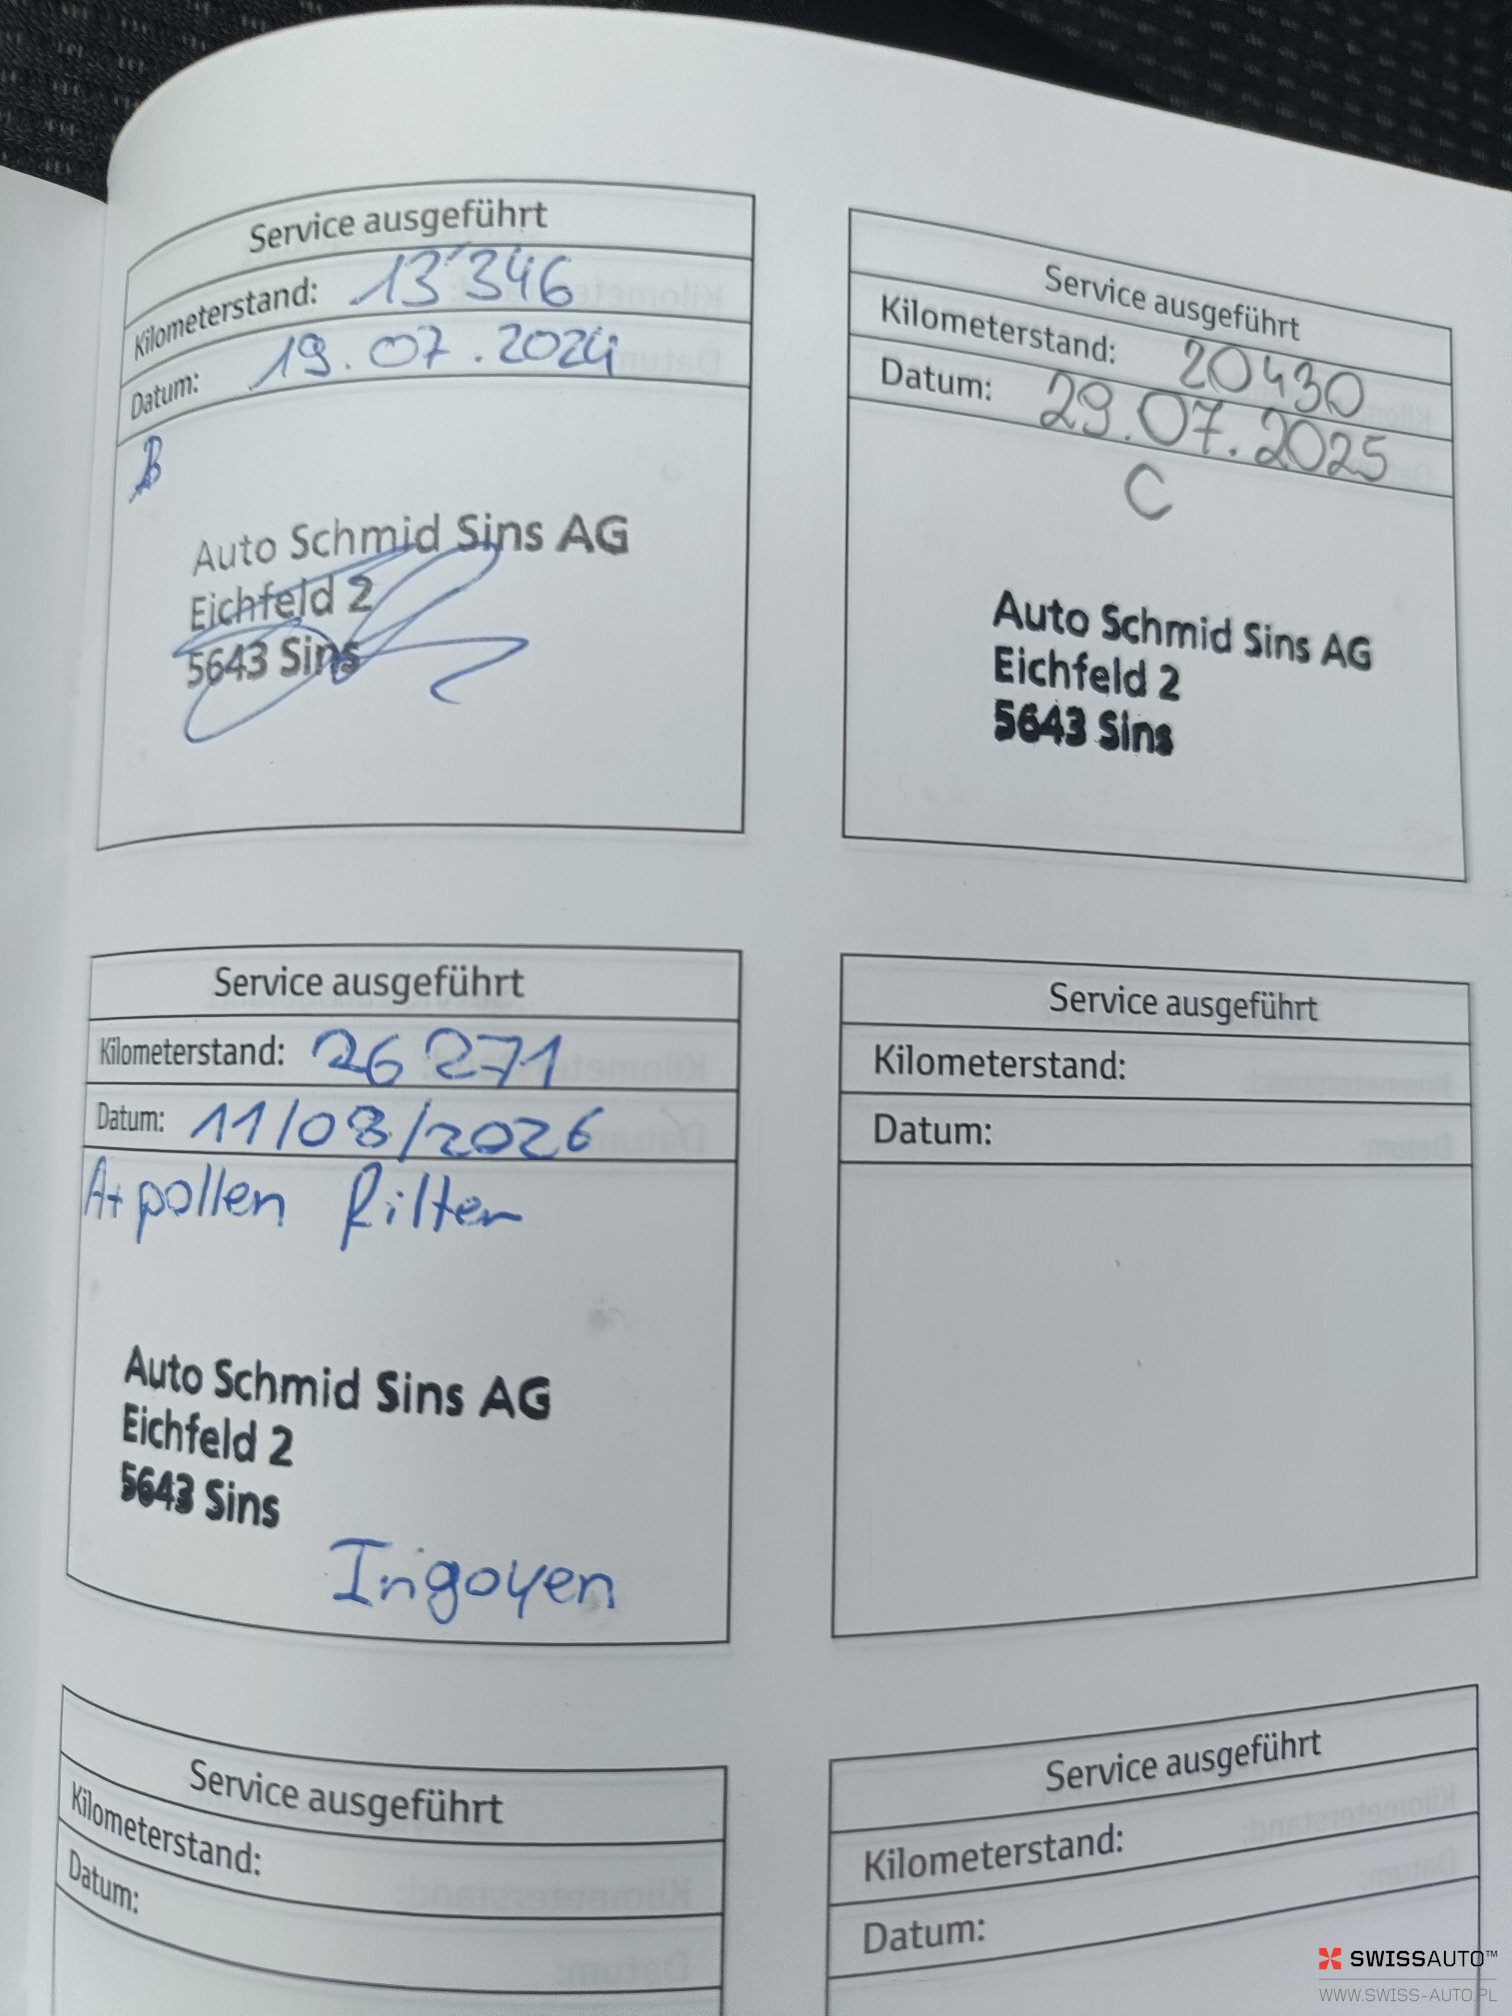 Service ausgeführt
Kilometerstand: 13'346
Datum: 19.07.2024
B
Auto Schmid Sins AG
Eichfeld 2
5643 Sins
Service ausgeführt
Kilometerstand: 20430
Datum: 29.07.2025
C
Auto Schmid Sins AG
Eichfeld 2
5643 Sins
Service ausgeführt
Kilometerstand: 26 271
Datum: 11/03/2026
A+ pollen Filter
Auto Schmid Sins AG
Eichfeld 2
5643 Sins
Irigoyen
Service ausgeführt
Kilometerstand:
Datum:
Service ausgeführt
Kilometerstand:
Datum:
Service ausgeführt
Kilometerstand:
Datum:
SWISSAUTO™
WWW.SWISS-AUTO.PL